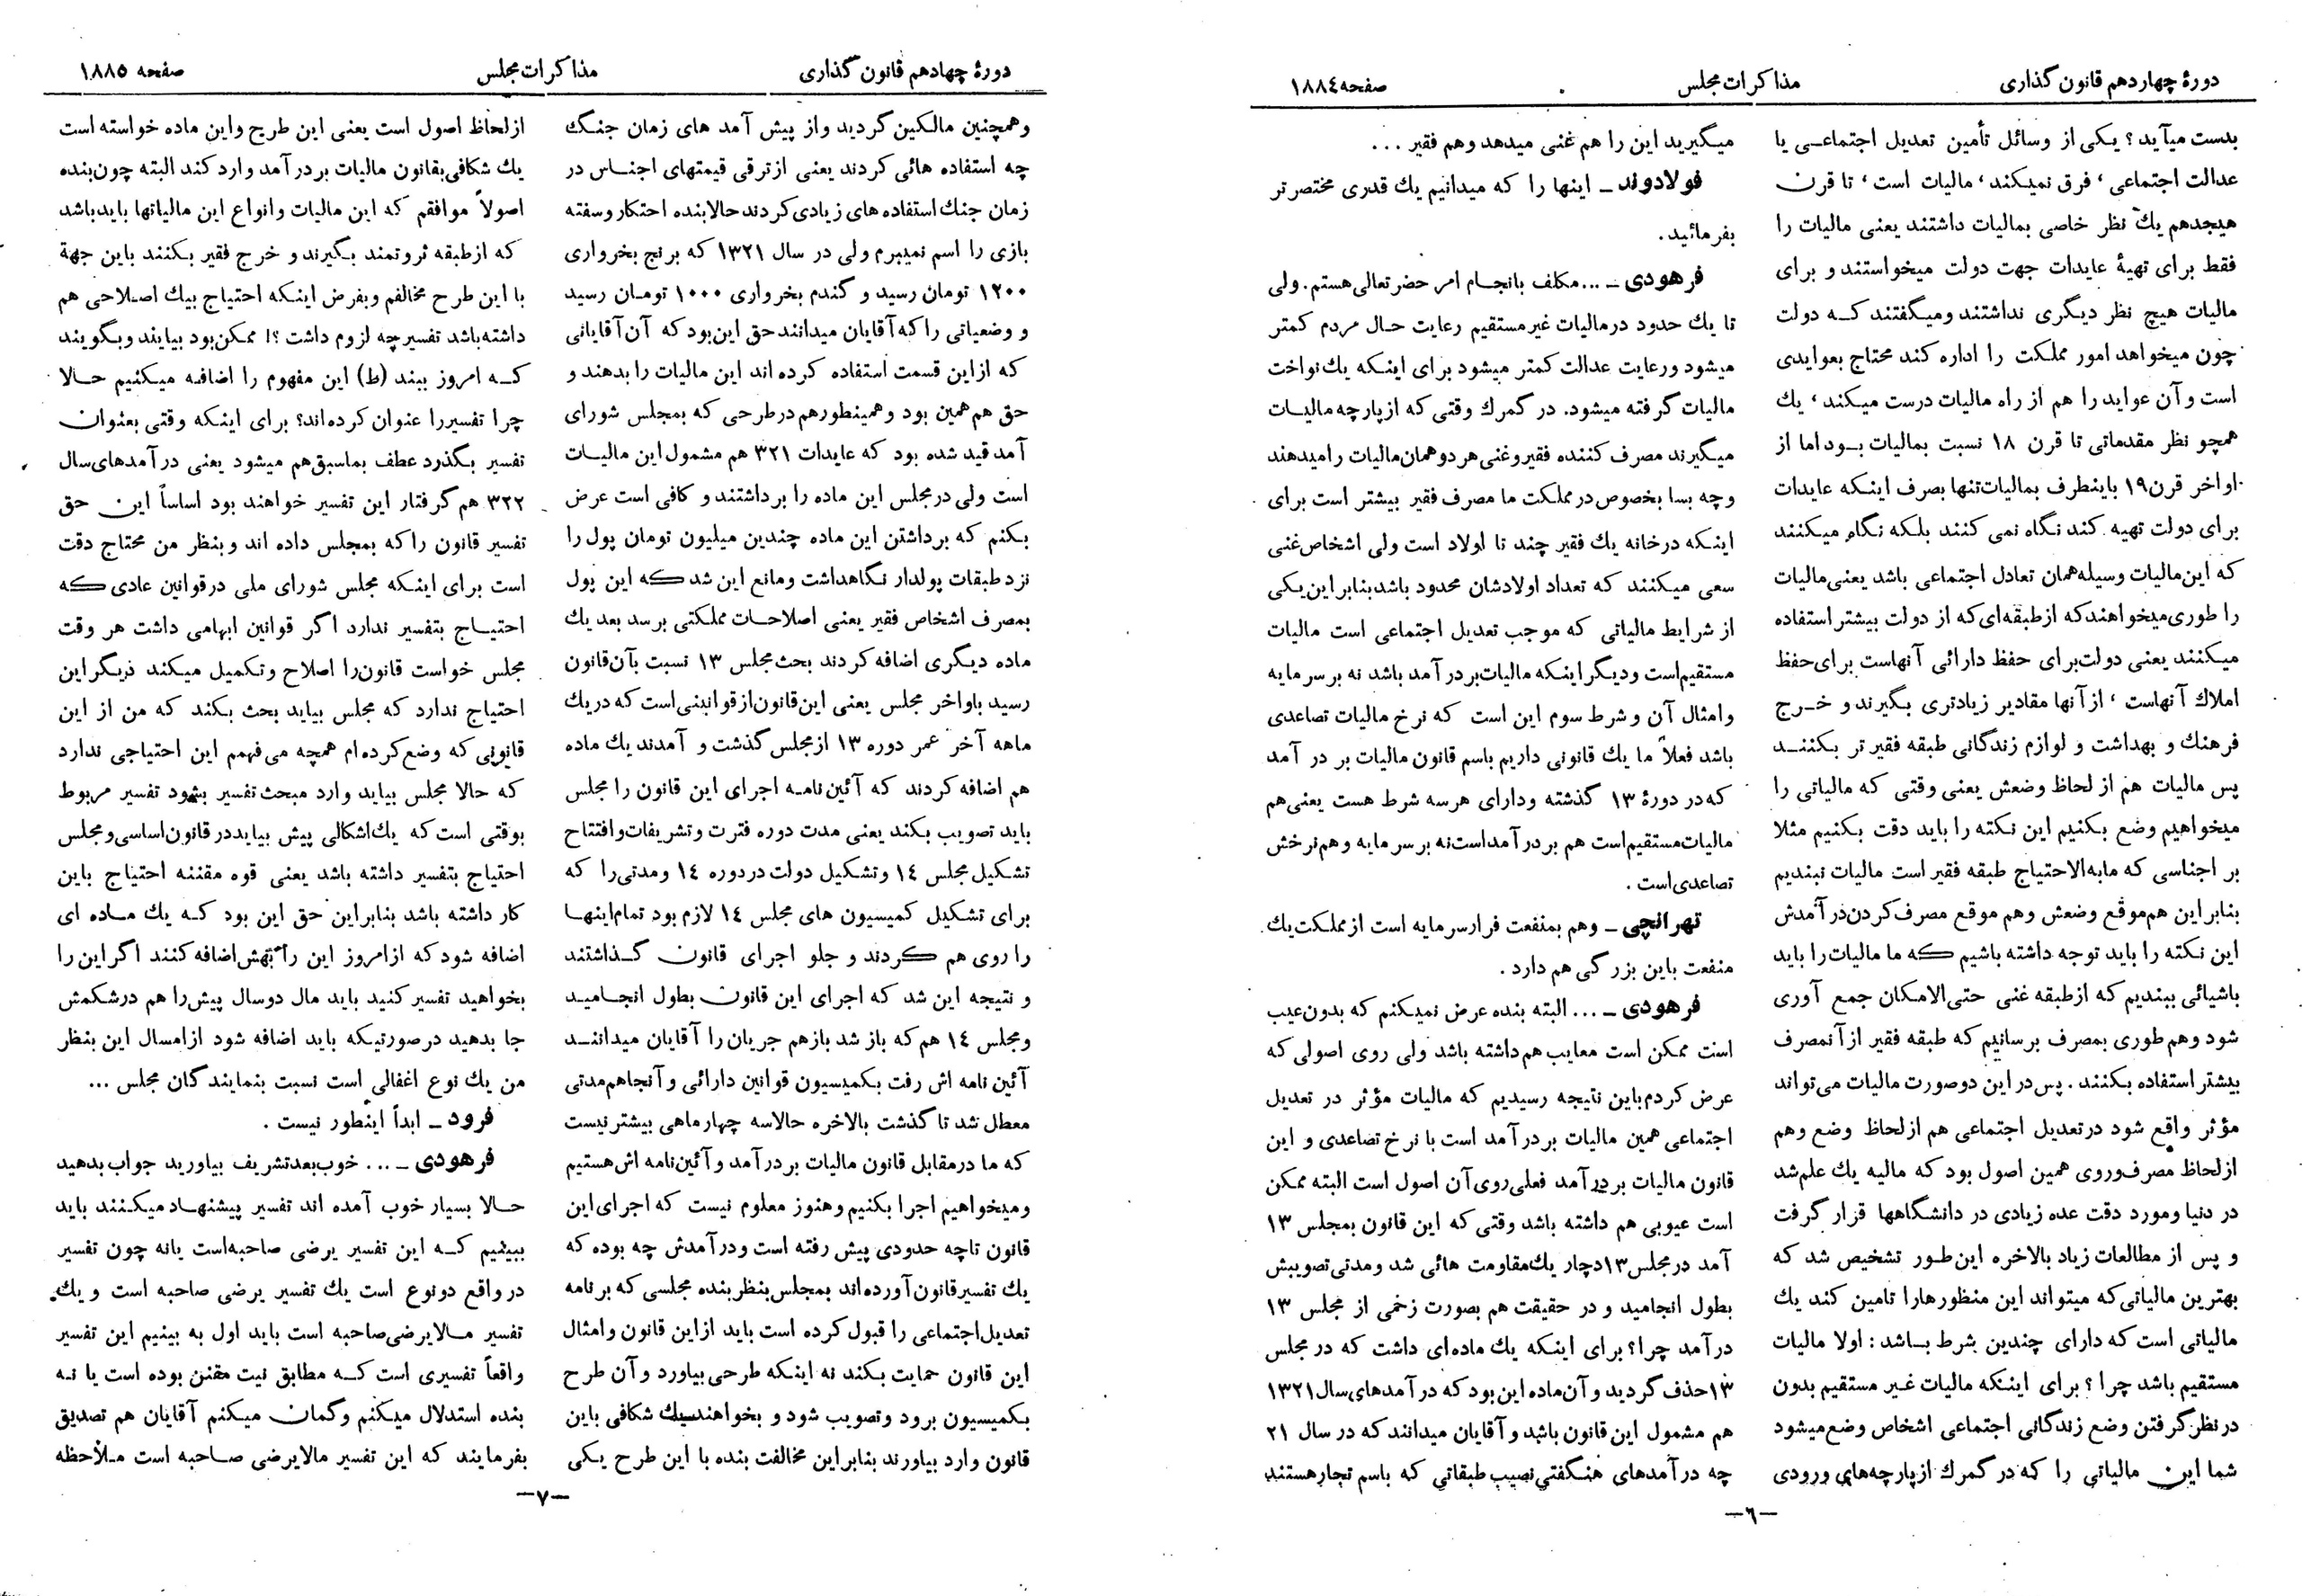 دورهٔ چهاردهم قانون گذاری
مذاکرات مجلس
صفحه ۱۸۸۴
بدست میآید ؟ یکی از وسائل تأمین تعدیل اجتماعـی یا
عدالت اجتماعی ، فرق نمیکند ، مالیات است ، تا قرن
هیجدهم یك نظر خاصی بمالیات داشتند یعنی مالیات را
فقط برای تهیهٔ عایدات جهت دولت میخواستند و برای
مالیات هیچ نظر دیگری نداشتند ومیگفتند کـه دولت
چون میخواهد امور مملکت را اداره کند محتاج بعوایدی
است و آن عواید را هم از راه مالیات درست میکند ، یك
همچو نظر مقدماتی تا قرن ۱۸ نسبت بمالیات بـود اما از
اواخر قرن ۱۹ باینطرف بمالیات تنها بصرف اینکه عایدات
برای دولت تهیه کند نگاه نمی کنند بلکه نگاه میکنند
که این مالیات وسیله همان تعادل اجتماعی باشد یعنی مالیات
را طوری میخواهند که از طبقه‌ای که از دولت بیشتر استفاده
میکنند یعنی دولت برای حفظ دارائی آنهاست برای حفظ
املاك آنهاست ، از آنها مقادیر زیادتری بگیرند و خـرج
فرهنك و بهداشت و لوازم زندگانی طبقه فقیر تر بکننـد
پس مالیات هم از لحاظ وضعش یعنی وقتی که مالیاتی را
میخواهیم وضع بکنیم این نکته را باید دقت بکنیم مثلا
بر اجناسی که مابه‌الاحتیاج طبقه فقیر است مالیات نبندیم
بنابر این هم موقع وضعش وهم موقع مصرف کردن در آمدش
این نکته را باید توجه داشته باشیم که ما مالیات را باید
باشیائی ببندیم که از طبقه غنی حتی‌الامکان جمع آوری
شود وهم طوری بمصرف برسانیم که طبقه فقیر از آنمصرف
بیشتر استفاده بکنند . پس در این دوصورت مالیات می تواند
مؤثر واقع شود در تعدیل اجتماعی هم از لحاظ وضع وهم
از لحاظ مصرف وروی همین اصول بود که مالیه یك علم شد
در دنیا ومورد دقت عده زیادی در دانشگاهها قرار گرفت
و پس از مطالعات زیاد بالاخره این طـور تشخیص شد که
بهترین مالیاتی که میتواند این منظورهارا تامین کند یك
مالیاتی است که دارای چندین شرط بـاشد : اولا مالیات
مستقیم باشد چرا ؟ برای اینکه مالیات غیر مستقیم بدون
در نظر گرفتن وضع زندگانی اجتماعی اشخاص وضع میشود
شما این مالیاتی را که در گمرك از پارچه‌های ورودی
میگیرید این را هم غنی میدهد وهم فقیر ...
فولادوند ـ اینها را که میدانیم یك قدری مختصر تر
بفرمائید .
فرهودی ـ ... مکلف بانجـام امر حضرتعالی هستم . ولی
تا یك حدود در مالیات غیر مستقیم رعایت حـال مردم کمتر
میشود ورعایت عدالت کمتر میشود برای اینکه یك نواخت
مالیات گرفته میشود. در گمرك وقتی که از پارچه مالیـات
میگیرند مصرف کننده فقیر وغنی هر دو همان مالیات را میدهند
وچه بسا بخصوص در مملکت ما مصرف فقیر بیشتر است برای
اینکه در خانه یك فقیر چند تا اولاد است ولی اشخاص غنی
سعی میکنند که تعداد اولادشان محدود باشد بنابر این یکی
از شرایط مالیاتی که موجب تعدیل اجتماعی است مالیات
مستقیم است و دیگر اینکه مالیات بر در آمد باشد نه بر سرمایه
وامثال آن و شرط سوم این است که نرخ مالیات تصاعدی
باشد فعلاً ما یك قانونی داریم باسم قانون مالیات بر در آمد
که در دورهٔ ۱۳ گذشته ودارای هر سه شرط هست یعنی هم
مالیات مستقیم است هم بر در آمد است نه بر سرمایه وهم نرخش
تصاعدی است .
تهرانچی ـ وهم بمنفعت فرار سرمایه است از مملکت یك
منفعت باین بزرگی هم دارد .
فرهودی ـ ... البته بنده عرض نمیکنم که بدون عیب
است ممکن است معایب هم داشته باشد ولی روی اصولی که
عرض کردم باین نتیجه رسیدیم که مالیات مؤثر در تعدیل
اجتماعی همین مالیات بر در آمد است با نرخ تصاعدی و این
قانون مالیات بر در آمد فعلی روی آن اصول است البته ممکن
است عیوبی هم داشته باشد وقتی که این قانون بمجلس ۱۳
آمد در مجلس ۱۳ دچار یك مقاومت هائی شد ومدتی تصویبش
بطول انجامید و در حقیقت هم بصورت زخمی از مجلس ۱۳
در آمد چرا ؟ برای اینکه یك ماده‌ای داشت که در مجلس
۱۳ حذف گردید و آن ماده این بود که در آمدهای سال ۱۳۲۱
هم مشمول این قانون باشد و آقایان میدانند که در سال ۲۱
چه در آمدهای هنگفتی نصیب طبقاتی که باسم تجار هستند
ـ۶ـ
دورهٔ چهادهم قانون گذاری
مذاکرات مجلس
صفحه ۱۸۸۵
وهمچنین مالکین گردید واز پیش آمد های زمان جنگ
چه استفاده هائی کردند یعنی از ترقی قیمتهای اجنـاس در
زمان جنك استفاده های زیادی کردند حالا بنده احتکار وسفته
بازی را اسم نمیبرم ولی در سال ۱۳۲۱ که برنج بخرواری
۱۲۰۰ تومان رسید و گندم بخرواری ۱۰۰۰ تومـان رسید
و وضعیاتی را که آقایان میدانند حق این بود که آن آقایانی
که از این قسمت استفاده کرده اند این مالیات را بدهند و
حق هم همین بود وهمینطور هم در طرحی که بمجلس شورای
آمد قید شده بود که عایدات ۳۲۱ هم مشمول این مالیـات
است ولی در مجلس این ماده را برداشتند و کافی است عرض
بکنم که برداشتن این ماده چندین میلیون تومان پول را
نزد طبقات پولدار نگاهداشت ومانع این شد که این پول
بمصرف اشخاص فقیر یعنی اصلاحـات مملکتی برسد بعد یك
ماده دیگری اضافه کردند بحث مجلس ۱۳ نسبت بآن قانون
رسید باواخر مجلس یعنی این قانون از قوانینی است که در یك
ماهه آخر عمر دوره ۱۳ از مجلس گذشت و آمدند یك ماده
هم اضافه کردند که آئین نامـه اجرای این قانون را مجلس
باید تصویب بکند یعنی مدت دوره فترت و تشریفات وافتتاح
تشکیل مجلس ۱۴ و تشکیل دولت در دوره ۱۴ ومدتی را که
برای تشکیل کمیسیون های مجلس ۱۴ لازم بود تمام اینهـا
را روی هم کردند و جلو اجرای قانون گـذاشتند
و نتیجه این شد که اجرای این قانون بطول انجـامیـد
ومجلس ۱۴ هم که باز شد باز هم جریان را آقایان میداننـد
آئین نامه اش رفت بکمیسیون قوانین دارائی و آنجاهم مدتی
معطل شد تا گذشت بالاخره حالا سه چهار ماهی بیشتر نیست
که ما در مقابل قانون مالیات بر در آمد و آئین نامه اش هستیم
ومیخواهیم اجرا بکنیم وهنوز معلوم نیست که اجرای این
قانون تا چه حدودی پیش رفته است ودر آمدش چه بوده که
یك تفسیر قانون آورده‌اند بمجلس بنظر بنده مجلسی که برنامه
تعدیل اجتماعی را قبول کرده است باید از این قانون وامثال
این قانون حمایت بکند نه اینکه طرحی بیاورد و آن طرح
بکمیسیون برود وتصویب شود و بخواهند یك شکافی باین
قانون وارد بیاورند بنابر این مخالفت بنده با این طرح یکی
از لحاظ اصول است یعنی این طرح واین ماده خواسته است
یك شکافی بقانون مالیات بر در آمد وارد کند البته چون بنده
اصولاً موافقم که این مالیات وانواع این مالیاتها باید باشد
که از طبقه ثروتمند بگیرند و خرج فقیر بکنند باین جهة
با این طرح مخالفم و بفرض اینکه احتیاج بیك اصلاحی هم
داشته باشد تفسیر چه لزوم داشت ؟! ممکن بود بیایند و بگویند
کـه امروز ببند (ط) این مفهوم را اضافـه میکنیم حـالا
چرا تفسیر را عنوان کرده اند؟ برای اینکه وقتی بعنوان
تفسیر بگذرد عطف بماسبق هم میشود یعنی در آمدهای سال
۳۲۲ هم گرفتار این تفسیر خواهند بود اساساً این حق
تفسیر قانون را که بمجلس داده اند و بنظر من محتاج دقت
است برای اینکه مجلس شورای ملی در قوانین عادی که
احتیـاج بتفسیر ندارد اگر قوانین ابهامی داشت هر وقت
مجلس خواست قانون را اصلاح وتکمیل میکند دیگر این
احتیاج ندارد که مجلس بیاید بحث بکند که من از این
قانونی که وضع کرده ام همچه می فهمم این احتیاجی ندارد
که حالا مجلس بیاید وارد مبحث تفسیر بشود تفسیر مربوط
بوقتی است که یك اشکالی پیش بیاید در قانون اساسی ومجلس
احتیاج بتفسیر داشته باشد یعنی قوه مقننه احتیاج باین
کار داشته باشد بنابر این حق این بود کـه یك مـاده ای
اضافه شود که از امروز این را بهش اضافه کنند اگر این را
بخواهید تفسیر کنید باید مال دوسال پیش را هم در شکمش
جا بدهید در صورتیکه باید اضافه شود از امسال این بنظر
من یك نوع اغفالی است نسبت بنمایندگان مجلس ...
فرود ـ ابداً اینطور نیست .
فرهودی ـ ... خوب بعد تشریف بیاورید جواب بدهید
حـالا بسیار خوب آمده اند تفسیر پیشنهـاد میکـنند باید
ببینیم کـه این تفسیر یرضی صاحبه است یانه چون تفسیر
در واقع دو نوع است یك تفسیر یرضی صاحبه است و یك
تفسیر مـالایرضی صاحبه است باید اول به بینیم این تفسیر
واقعاً تفسیری است کـه مطابق نیت مقنن بوده است یا نـه
بنده استدلال میکنم و گمان میکنم آقایان هم تصدیق
بفرمایند که این تفسیر مالایرضی صـاحبه است مـلاحظه
ـ۷ـ